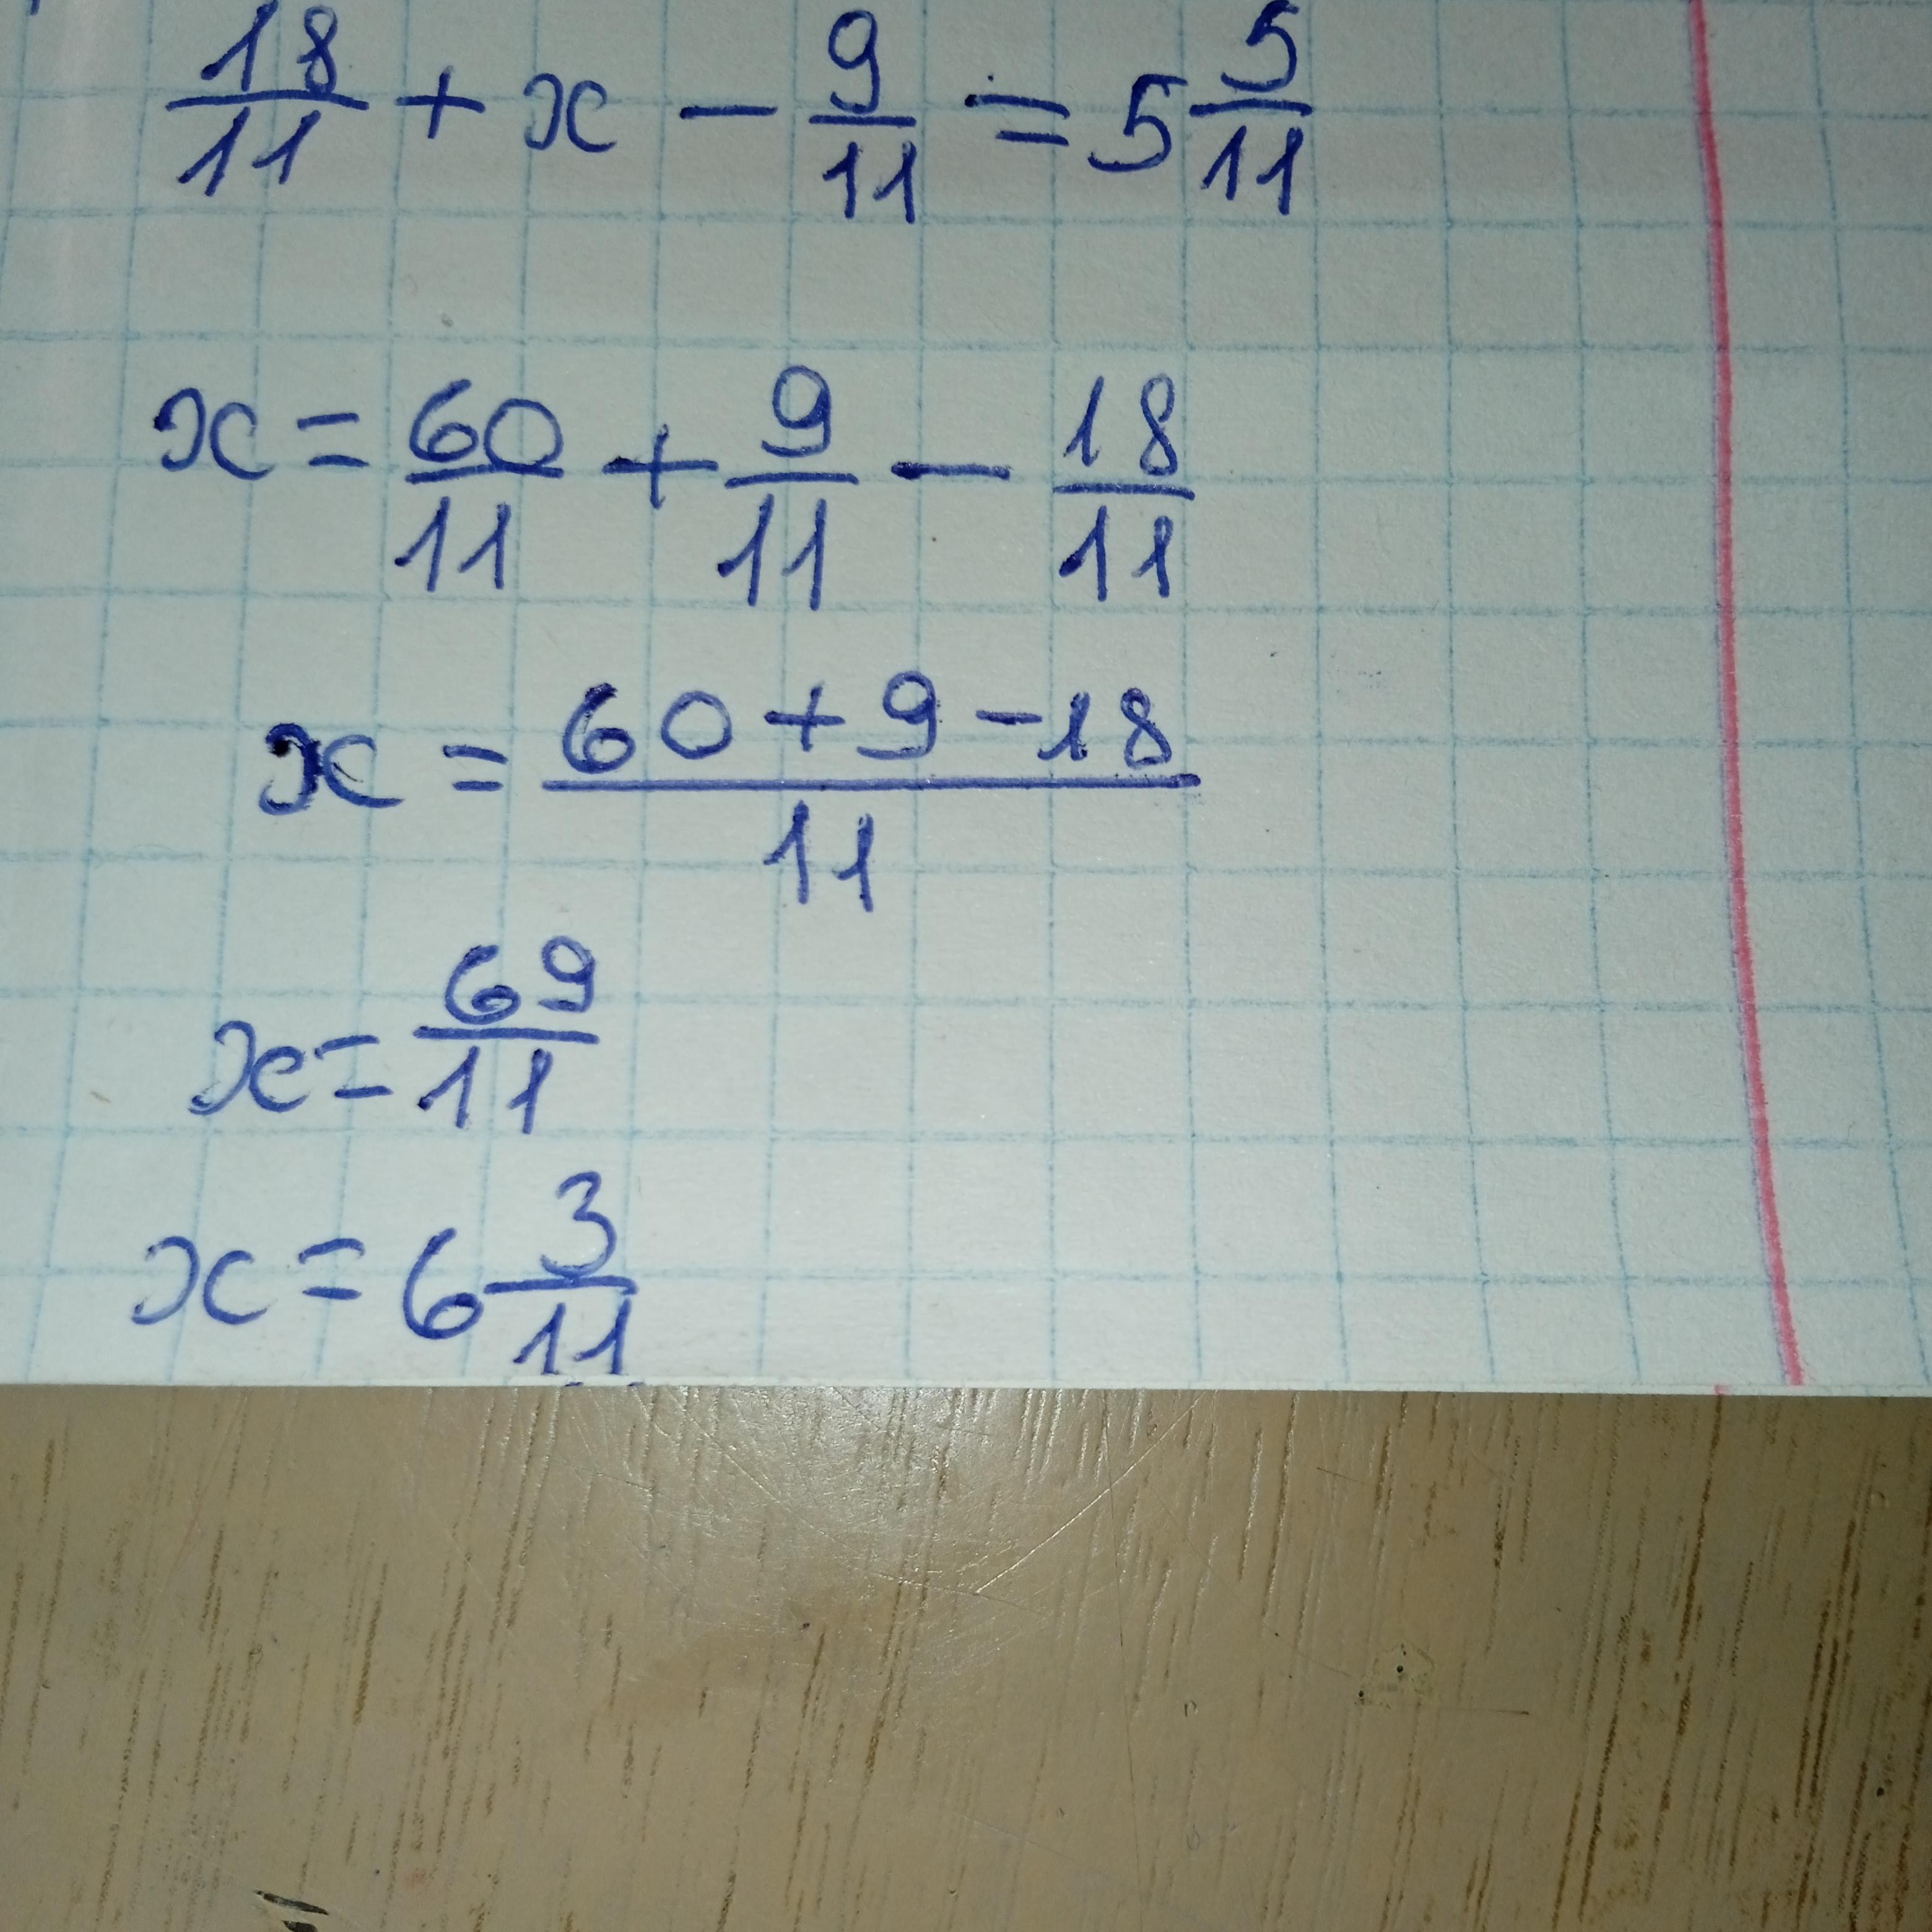 18/11 + x - 9/11 = 5 5/11
x = 60/11 + 9/11 - 18/11
x = (60 + 9 - 18)/11
x = 69/11
x = 6 3/11